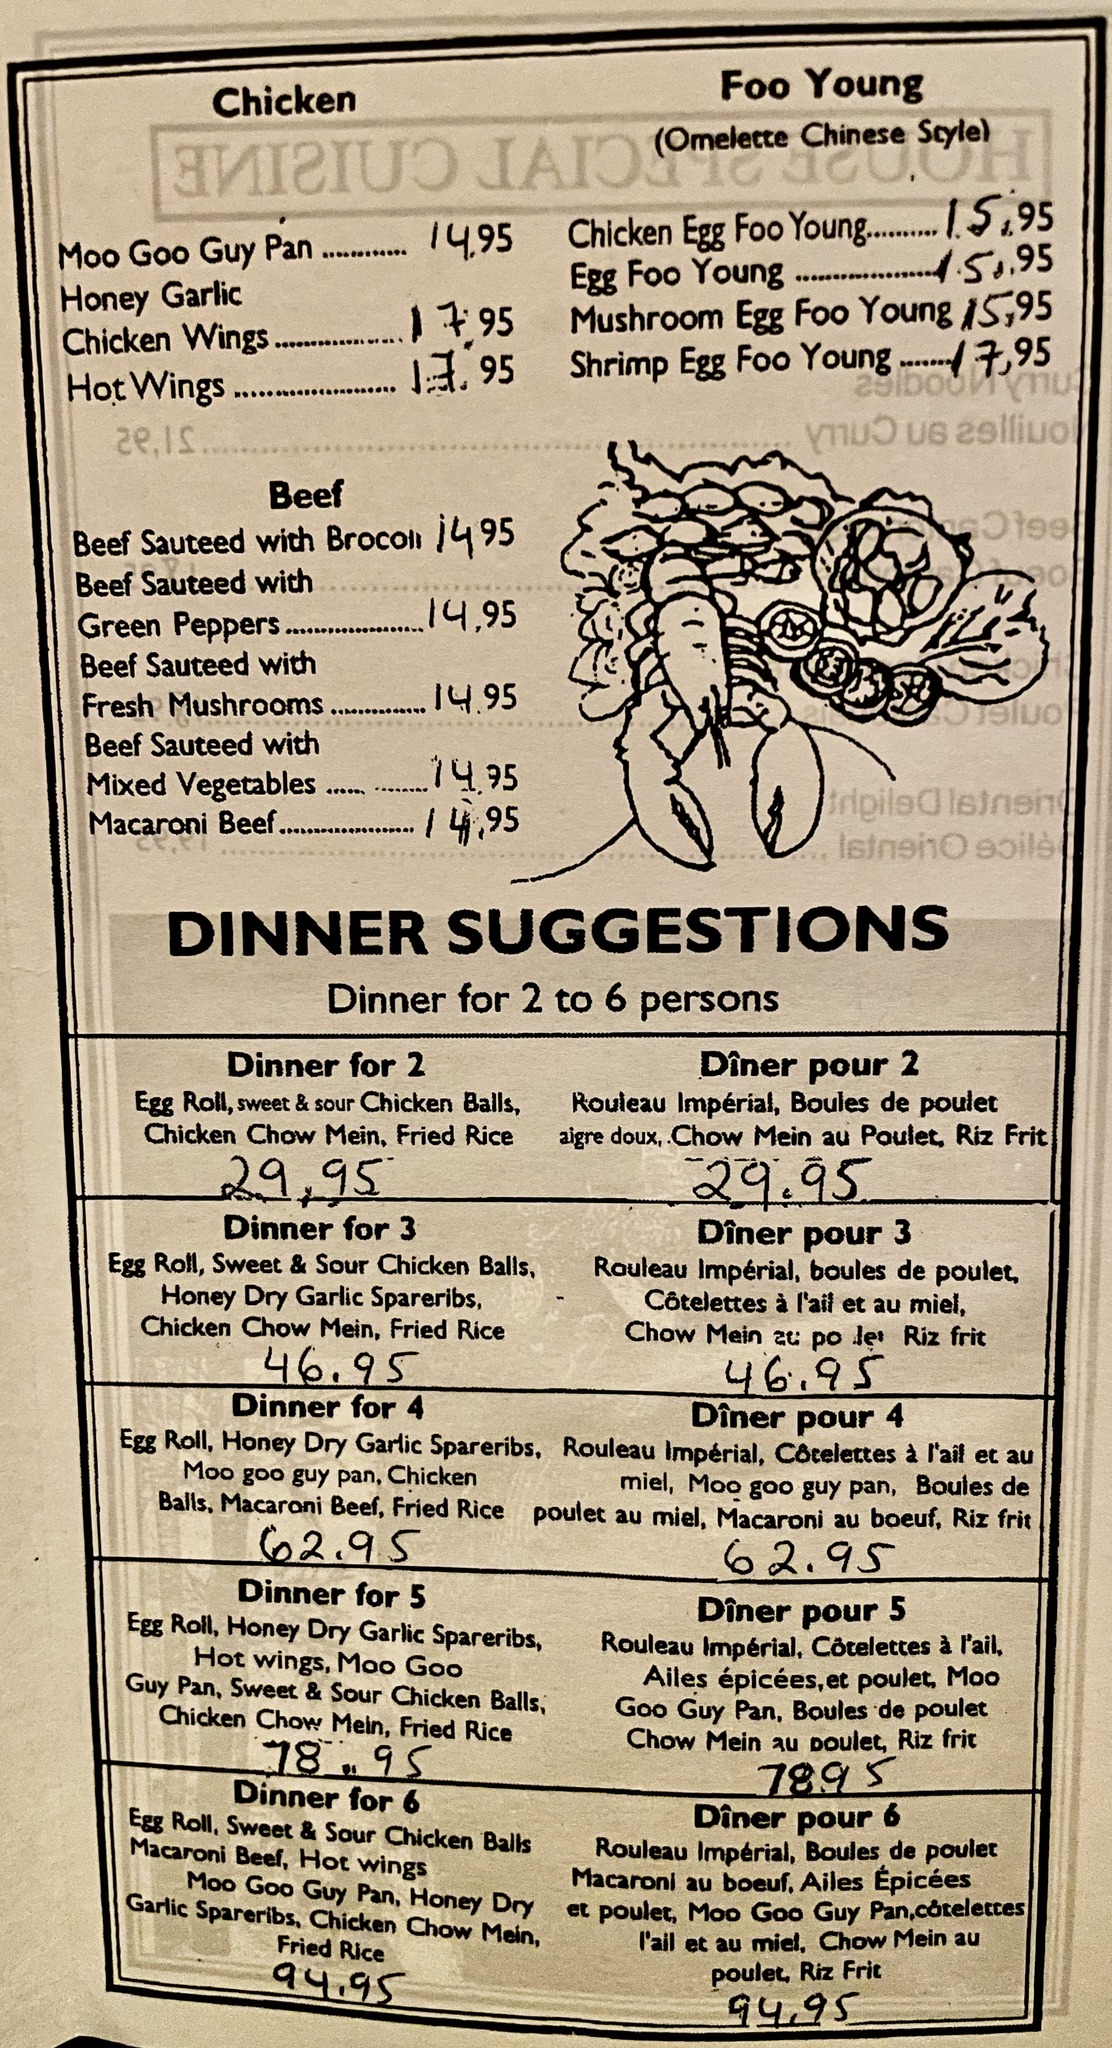 Chicken
Moo Goo Guy Pan ............ 14.95
Honey Garlic
Chicken Wings .................. 17.95
Hot Wings ...................... 17.95
Foo Young
(Omelette Chinese Style)
Chicken Egg Foo Young.......... 15.95
Egg Foo Young ................... 15.95
Mushroom Egg Foo Young 15,95
Shrimp Egg Foo Young ....... 17,95
Beef
Beef Sauteed with Brocoli 14.95
Beef Sauteed with
Green Peppers .................... 14.95
Beef Sauteed with
Fresh Mushrooms .............. 14.95
Beef Sauteed with
Mixed Vegetables ...... ........ 14.95
Macaroni Beef.................... 14.95
HOUSE SPECIAL CUISINE
Curry Noodles
Nouilles au Curry
21,95
Oriental Delight
Délice Oriental
19,95
DINNER SUGGESTIONS
Dinner for 2 to 6 persons
Dinner for 2
Egg Roll, sweet & sour Chicken Balls,
Chicken Chow Mein, Fried Rice
29.95
Dîner pour 2
Rouleau Impérial, Boules de poulet
aigre doux, Chow Mein au Poulet, Riz Frit
29.95
Dinner for 3
Egg Roll, Sweet & Sour Chicken Balls,
Honey Dry Garlic Spareribs,
Chicken Chow Mein, Fried Rice
46.95
Dîner pour 3
Rouleau Impérial, boules de poulet,
Côtelettes à l'ail et au miel,
Chow Mein au Riz frit
46.95
Dinner for 4
Egg Roll, Honey Dry Garlic Spareribs,
Moo goo guy pan, Chicken
Balls, Macaroni Beef, Fried Rice
62.95
Dîner pour 4
Rouleau Impérial, Côtelettes à l'ail et au
miel, Moo goo guy pan, Boules de
poulet au miel, Macaroni au boeuf, Riz frit
62.95
Dinner for 5
Egg Roll, Honey Dry Garlic Spareribs,
Hot wings, Moo Goo
Guy Pan, Sweet & Sour Chicken Balls,
Chicken Chow Mein, Fried Rice
78.95
Dîner pour 5
Rouleau Impérial, Côtelettes à l'ail,
Ailes épicées,et poulet, Moo
Goo Guy Pan, Boules de poulet
Chow Mein au poulet, Riz frit
78.95
Dinner for 6
Egg Roll, Sweet & Sour Chicken Balls
Macaroni Beef, Hot wings
Moo Goo Guy Pan, Honey Dry
Garlic Spareribs, Chicken Chow Mein,
Fried Rice
94.95
Dîner pour 6
Rouleau Impérial, Boules de poulet
Macaroni au boeuf, Ailes Épicées
et poulet, Moo Goo Guy Pan,côtelettes
l'ail et au miel, Chow Mein au
poulet, Riz Frit
94.95